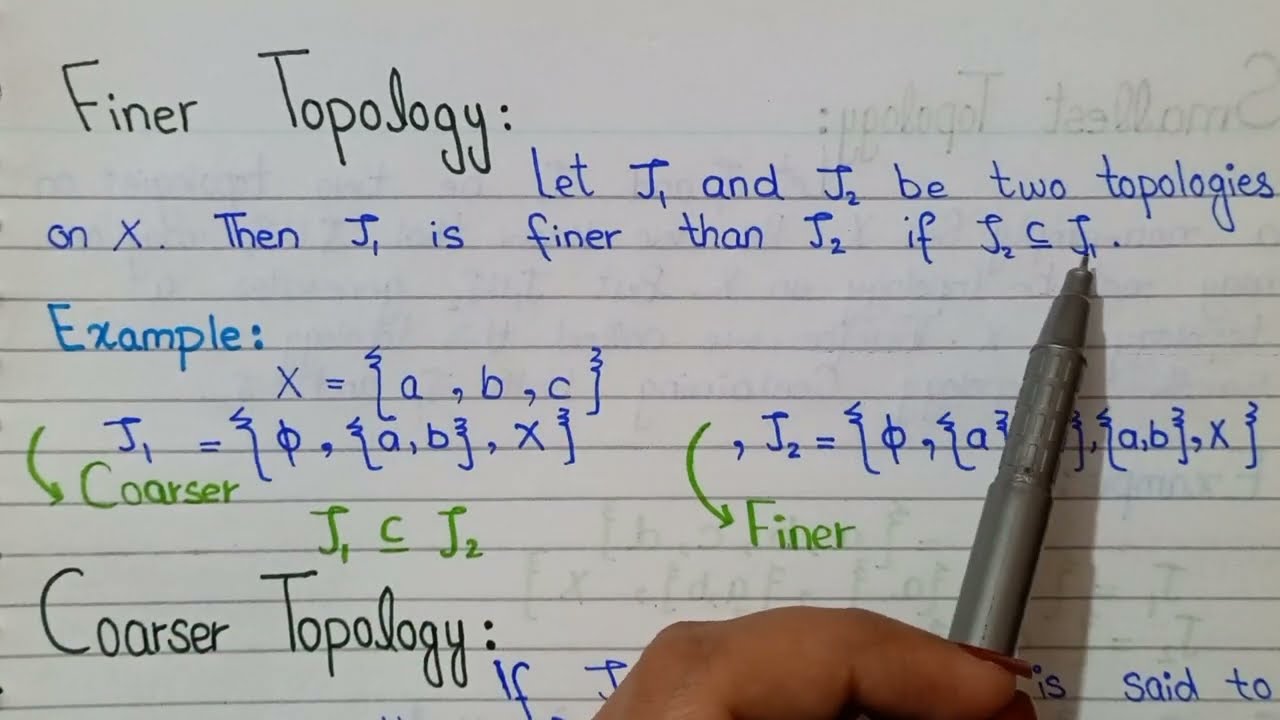 Finer Topology:
Let J₁ and J₂ be two topologies
on X. Then J₁ is finer than J₂ if J₂ ⊆ J₁.
Example:
X = {a, b, c}
J₁ = {ϕ, {a, b}, X} , J₂ = {ϕ, {a} }, {a,b}, X}
Coarser Finer
J₁ ⊆ J₂
Coarser Topology:
If J is said to